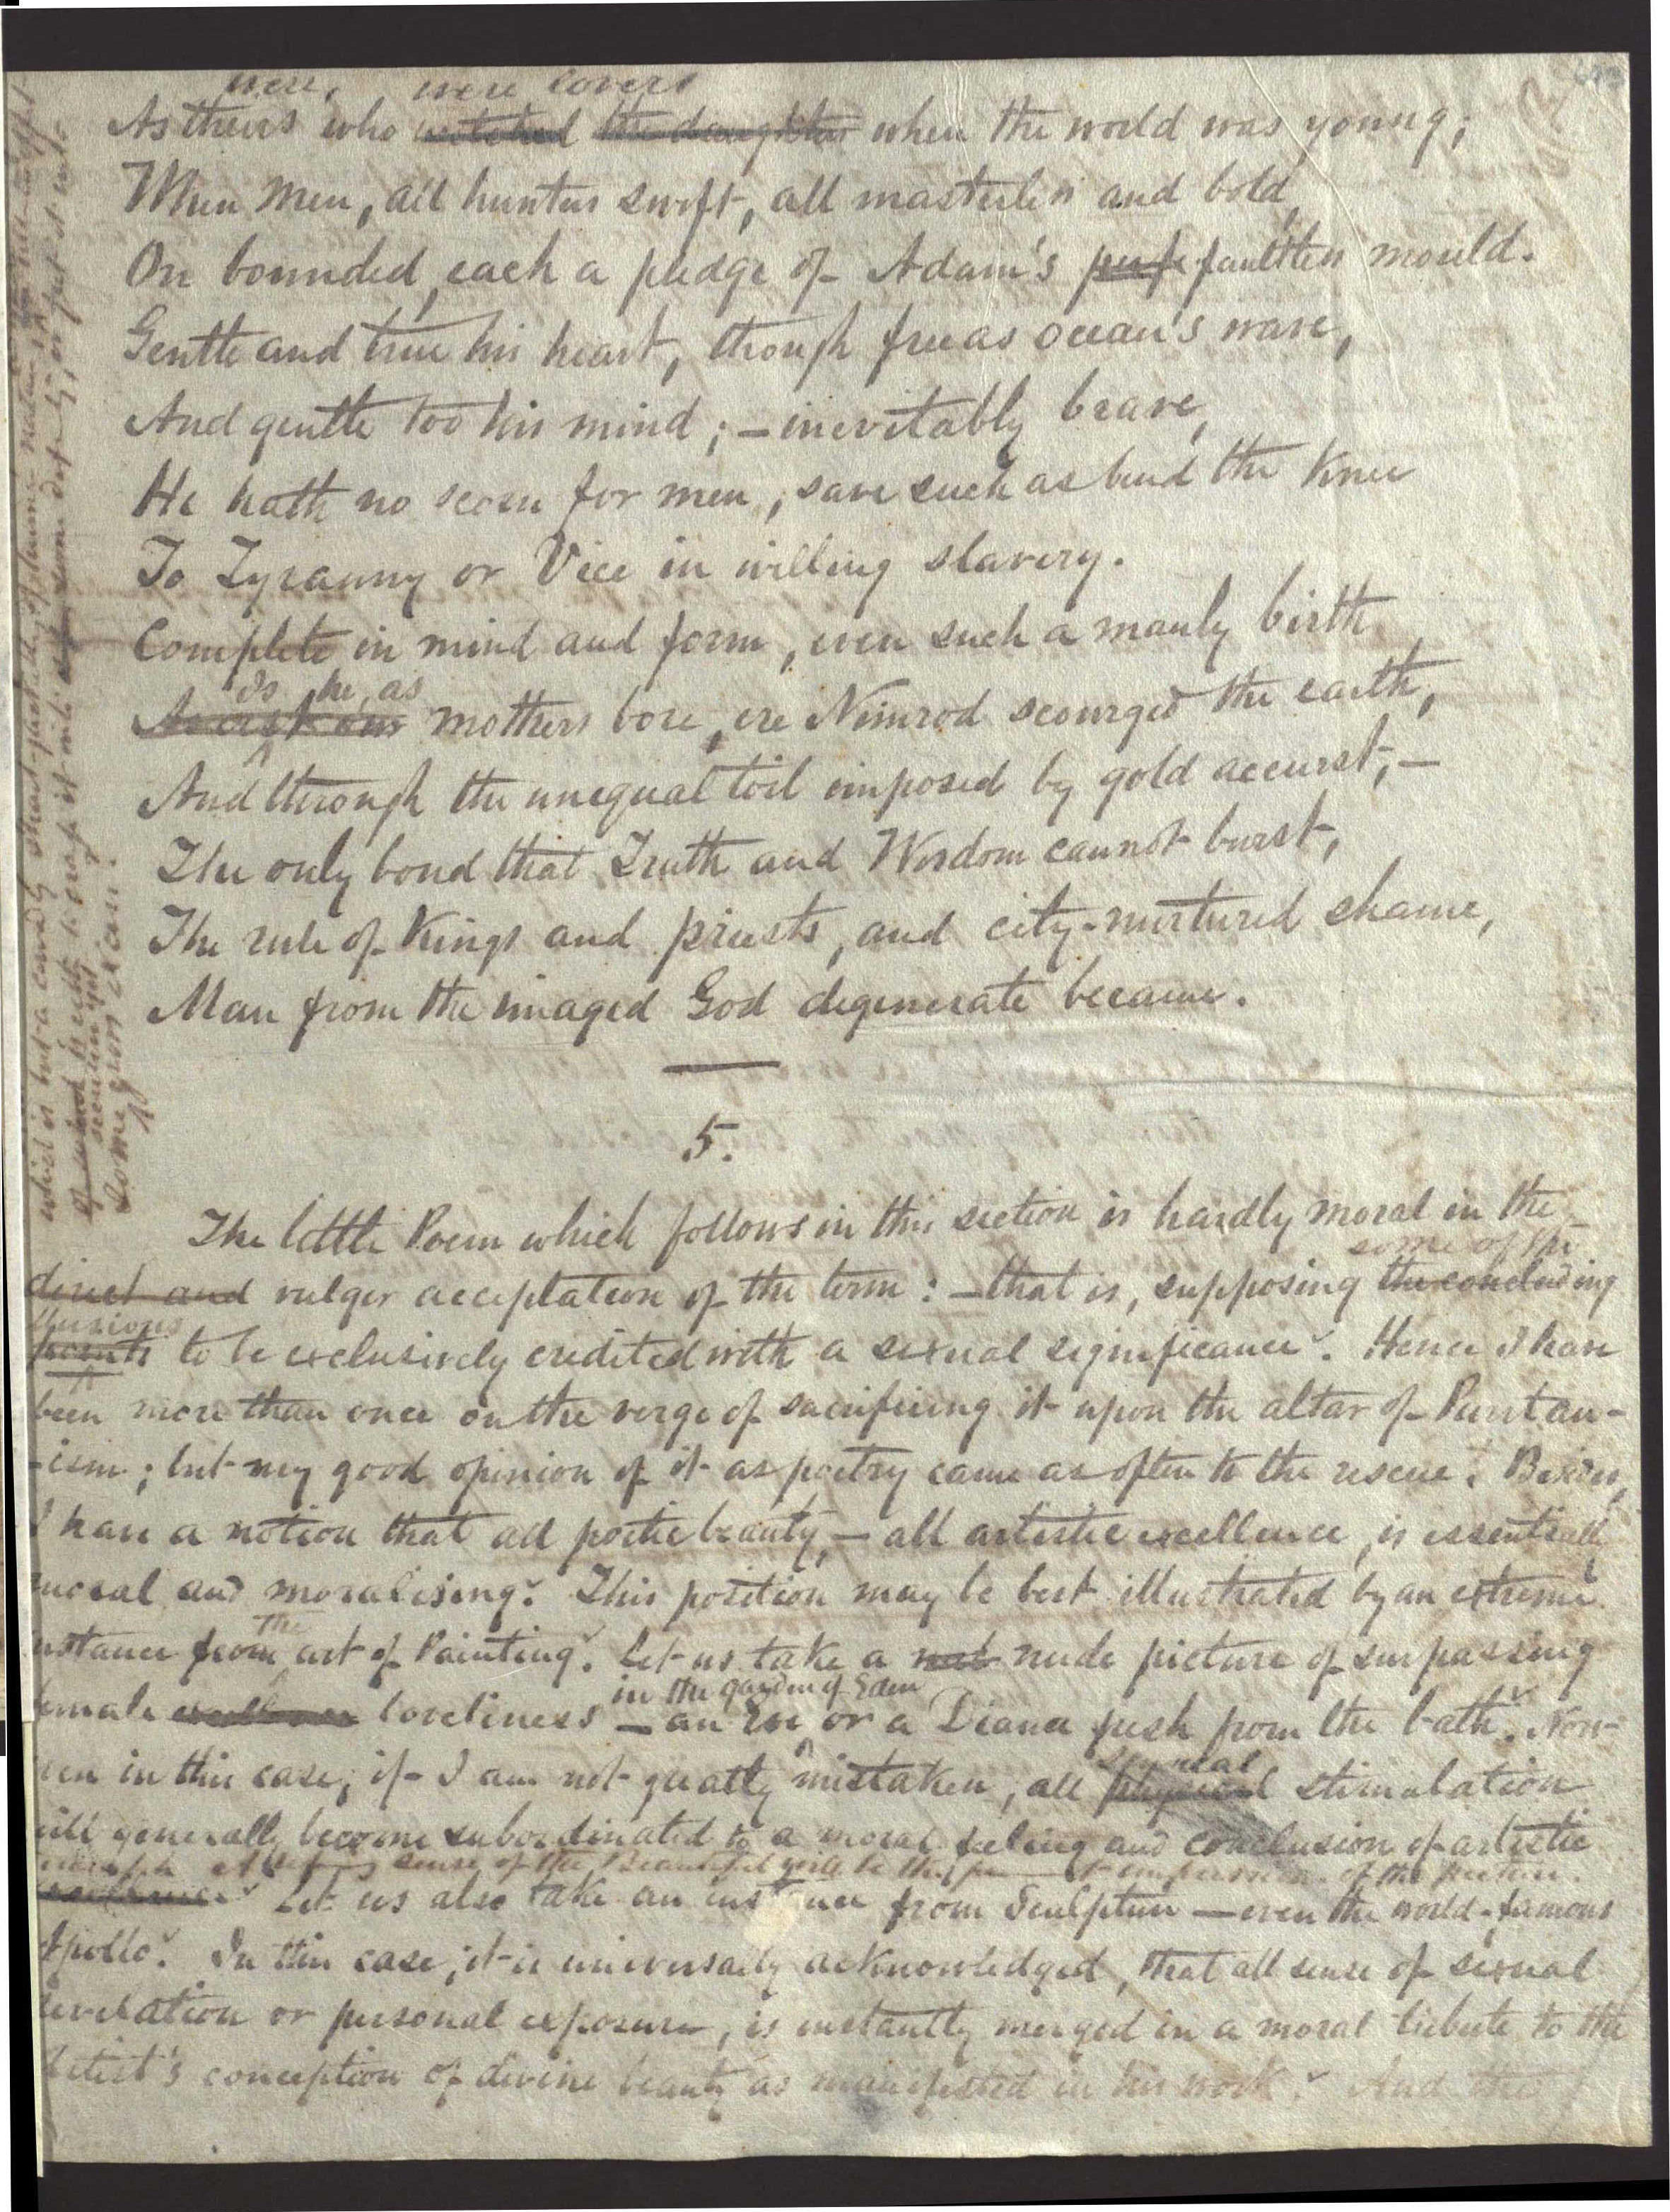 were, were lovers
As theirs who watched the daughters when the world was young;
When Men, all hunters swift, all masterless and bold,
On bounded, each a pledge of Adam's perfe faultless mould.
Gentle and true his heart, though free as ocean's wave,
And gentle too his mind; – inevitably brave,
He hath no scorn for men, save such as bend the Knee
To Tyranny or Vice in willing slavery.
Complete in mind and form, even such a manly birth
Is he, as
mothers bore, ere Nimrod scourged the earth,
And through the unequal toil imposed by gold accurst, –
The only bond that Truth and Wisdom cannot burst,
The rule of Kings and priests, and city-nurtured shame,
Man from the imaged God degenerate became.
5.
The little Poem which follows in this section is hardly moral in the
some of the
direct and vulgar acceptation of the term: – that is, supposing the concluding
allusions
points to be exclusively credited with a sexual significance. Hence I have
been more than once on the verge of sacrificing it upon the altar of Puritan-
-ism; but my good opinion of it as poetry came as often to the rescue. Besides,
I have a notion that all poetic beauty, – all artistic excellence, is essentially
moral and moralising. This position may be best illustrated by an extreme
the
instance from art of Painting. Let us take a nude picture of surpassing
in the garden of Eden
female excellence loveliness – an Eve, or a Diana fresh from the bath. Now
even in this case, if I am not greatly mistaken, all physical stimulation
will generally become subordinated to a moral feeling and conclusion of artistic
sense of the Beautiful will be the impression of the picture.
Let us also take an instance from Sculpture – even the world-famous
Apollo. In this case, it is universally acknowledged, that all sense of sexual
revelation or personal exposure, is instantly merged in a moral tribute to the
Artist's conception of divine beauty as manifested in his work. And the
which is but a
some given